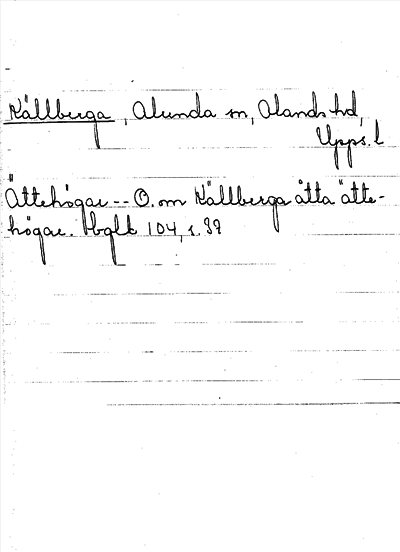 Källberga, Alunda sn, Olands hd,
Upps. l
Ättehögar -- O. om Källberga åtta ätte-
högar. Hbglb 104, s. 39